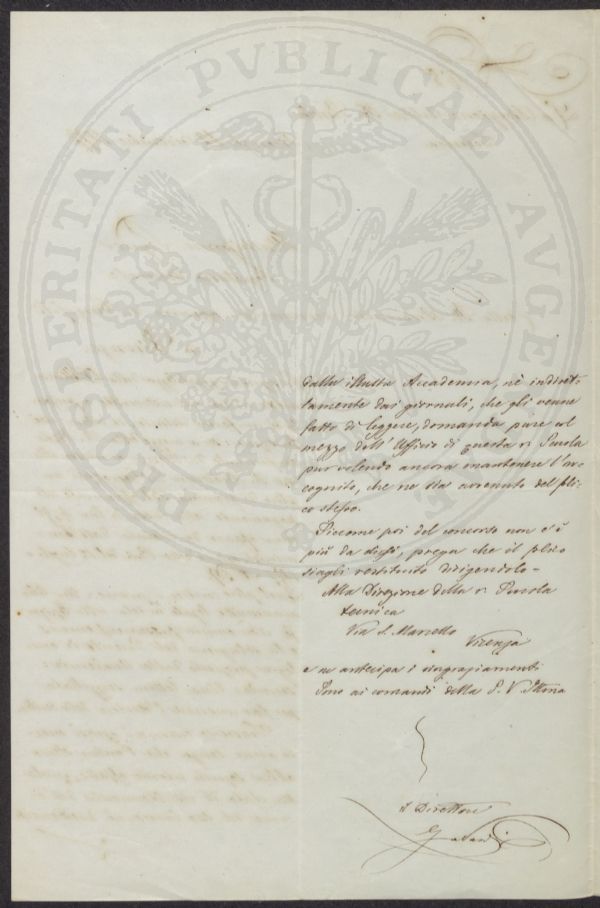 PROSPERITATI PVBLICAE AVGENDAE
dalla illustre Accademia, nè indiret-
tamente dai giornali, che gli venne
fatto di leggere, domanda pure col
mezzo dell' Ufficio di questa r. Scuola
pur volendo ancora mantenere l'in-
cognito, che ne sia avvenuto del pli-
co stesso.
Siccome poi del concorso non c'è
più da dirsi, prega che il plico
siagli restituito dirigendolo -
Alla Direzione della r. Scuola
tecnica
Via S. Marcello
Vicenza
e ne antecipa i ringraziamenti
Sono ai comandi della S. V. Ill.ma
Il Direttore